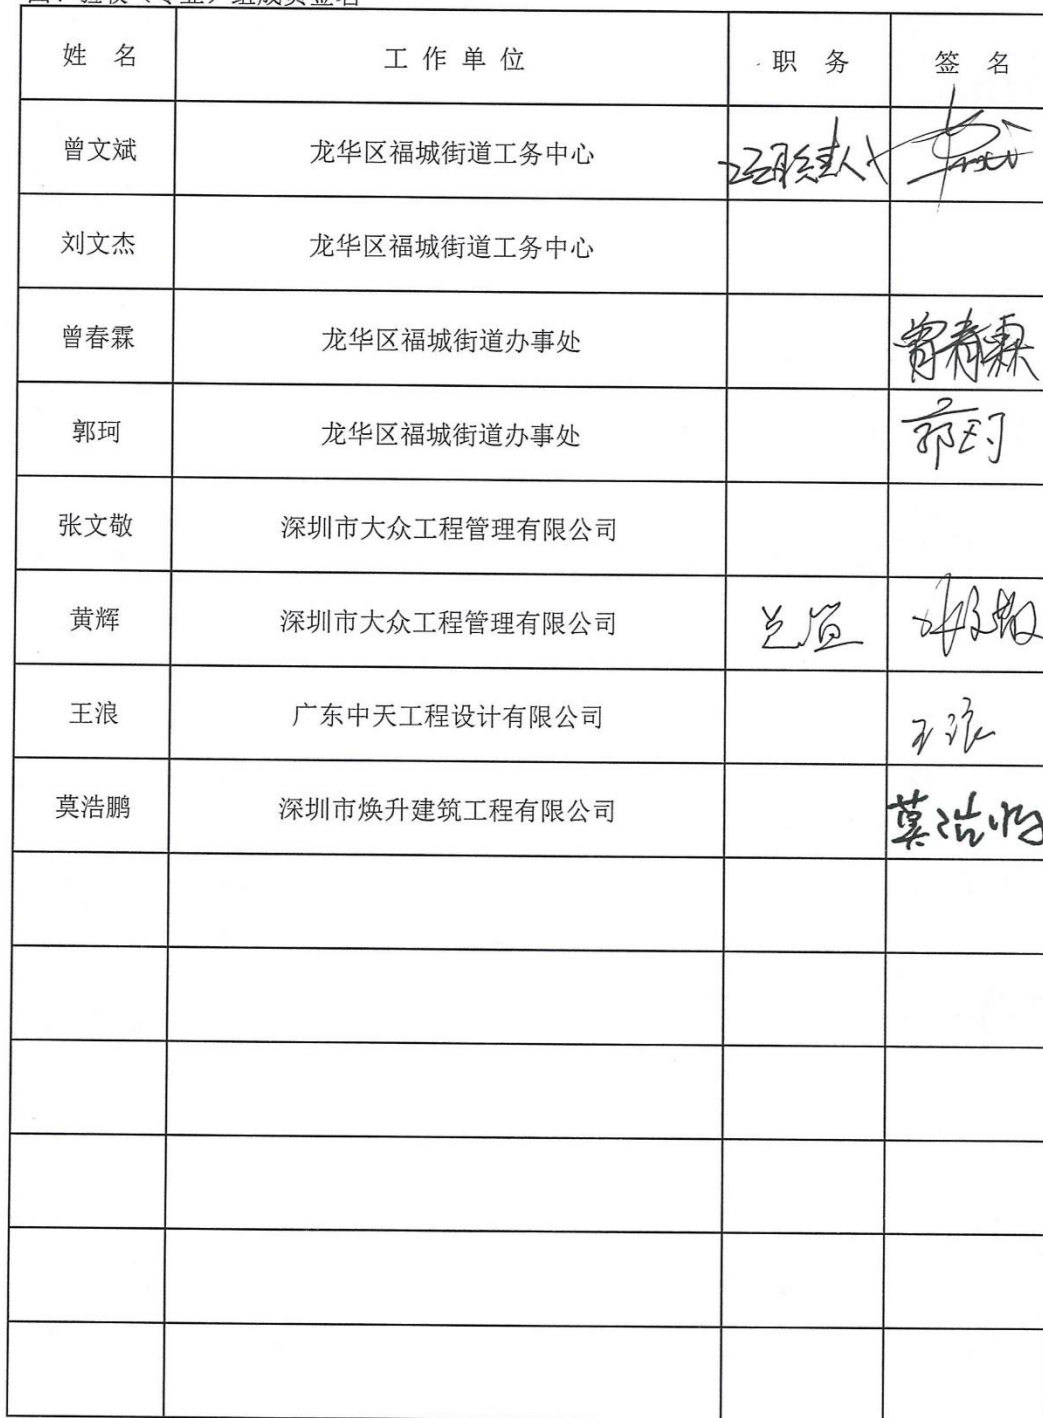 姓 名 工 作 单 位 职 务 签 名
曾文斌 龙华区福城街道工务中心
刘文杰 龙华区福城街道工务中心
曾春霖 龙华区福城街道办事处 曾春霖
郭珂 龙华区福城街道办事处 郭珂
张文敬 深圳市大众工程管理有限公司
黄辉 深圳市大众工程管理有限公司 总监
王浪 广东中天工程设计有限公司 王浪
莫浩鹏 深圳市焕升建筑工程有限公司 莫浩鹏